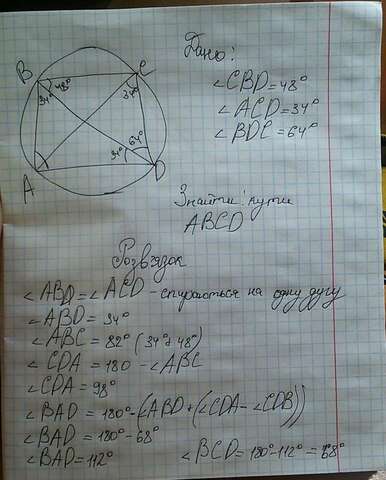 Дано:
∠CBD = 48°
∠ACD = 34°
∠BDC = 64°
B
48°
34°
C
34°
64°
34°
A
D
Знайти: кути
ABCD
Розв'язок
∠ABD = ∠ACD - спираються на одну дугу
∠ABD = 34°
∠ABC = 82° (34°+48°)
∠CDA = 180 - ∠ABC
∠CDA = 98°
∠BAD = 180° - (∠ABD + (∠CDA - ∠CDB))
∠BAD = 180° - 68°
∠BAD = 112°
∠BCD = 180° - 112° = 68°